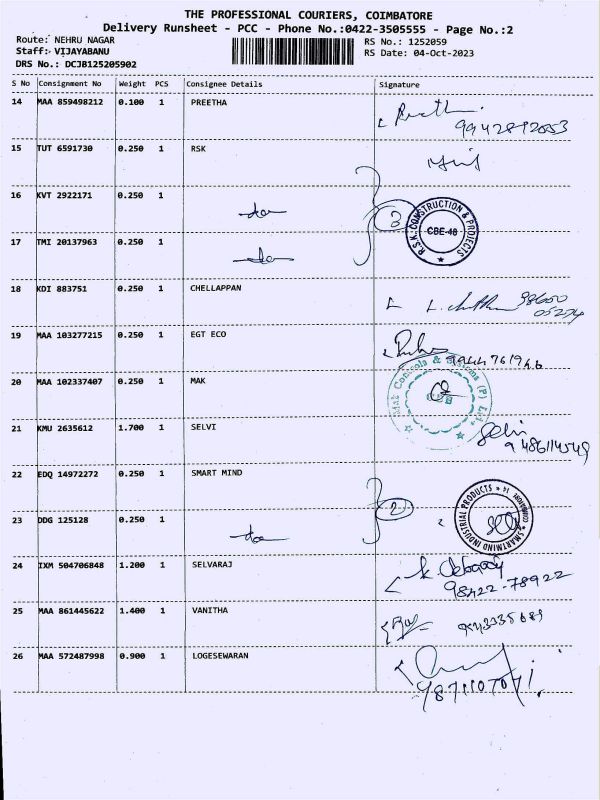 THE PROFESSIONAL COURIERS, COIMBATORE
Delivery Runsheet - PCC - Phone No.:0422-3505555 - Page No.:2
Route: NEHRU NAGAR RS No.: 1252059
Staff: VIJAYABANU RS Date: 04-Oct-2023
DRS No.: DCJB125205902
S No Consignment No Weight PCS Consignee Details Signature
14 MAA 859498212 0.100 1 PREETHA
15 TUT 6591730 0.250 1 RSK
16 KVT 2922171 0.250 1 do
17 TMI 20137963 0.250 1 do
R.S.K. CONSTRUCTION & PROJECTS CBE-48
18 KDI 883751 0.250 1 CHELLAPPAN
19 MAA 103277215 0.250 1 EGT ECO
20 MAA 102337407 0.250 1 MAK
21 KMU 2635612 1.700 1 SELVI Selvi
22 EDQ 14972272 0.250 1 SMART MIND
2
23 DDG 125128 0.250 1 do
SMARTMIND INDUSTRIAL PRODUCTS
24 IXM 504706848 1.200 1 SELVARAJ
98422-78922
25 MAA 861445622 1.400 1 VANITHA
26 MAA 572487998 0.900 1 LOGESEWARAN